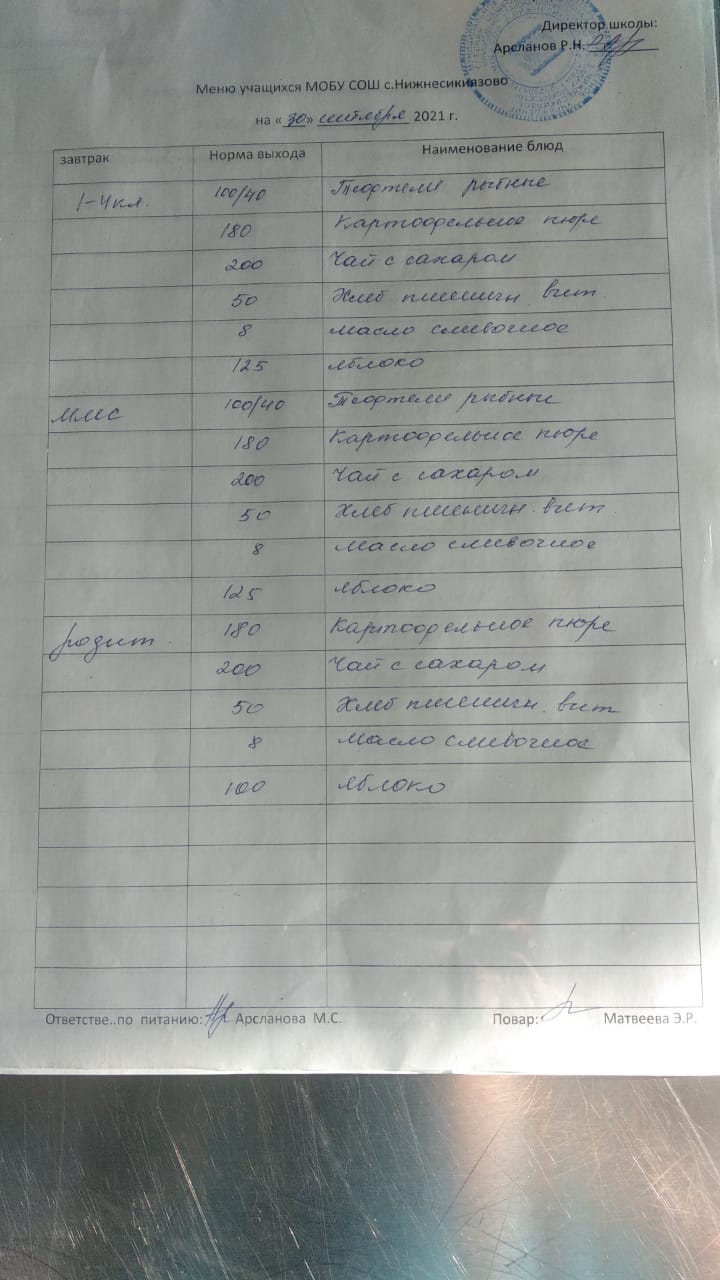 Директор школы:
Арсланов Р.Н.
Меню учащихся МОБУ СОШ с.Нижнесикиязово
на «30» сентября 2021 г.
завтрак Норма выхода Наименование блюд
1-4кл. 100/40 Тефтели рыбные
180 Картофельное пюре
200 Чай с сахаром
50 Хлеб пшеничн. вит.
8 масло сливочное
125 яблоко
ммс 100/40 Тефтели рыбные
180 Картофельное пюре
200 Чай с сахаром
50 Хлеб пшеничн. вит.
8 масло сливочное
125 яблоко
родит. 180 Картофельное пюре
200 Чай с сахаром
50 Хлеб пшеничн. вит
8 масло сливочное
100 яблоко
Ответстве..по питанию: Арсланова М.С. Повар: Матвеева Э.Р.